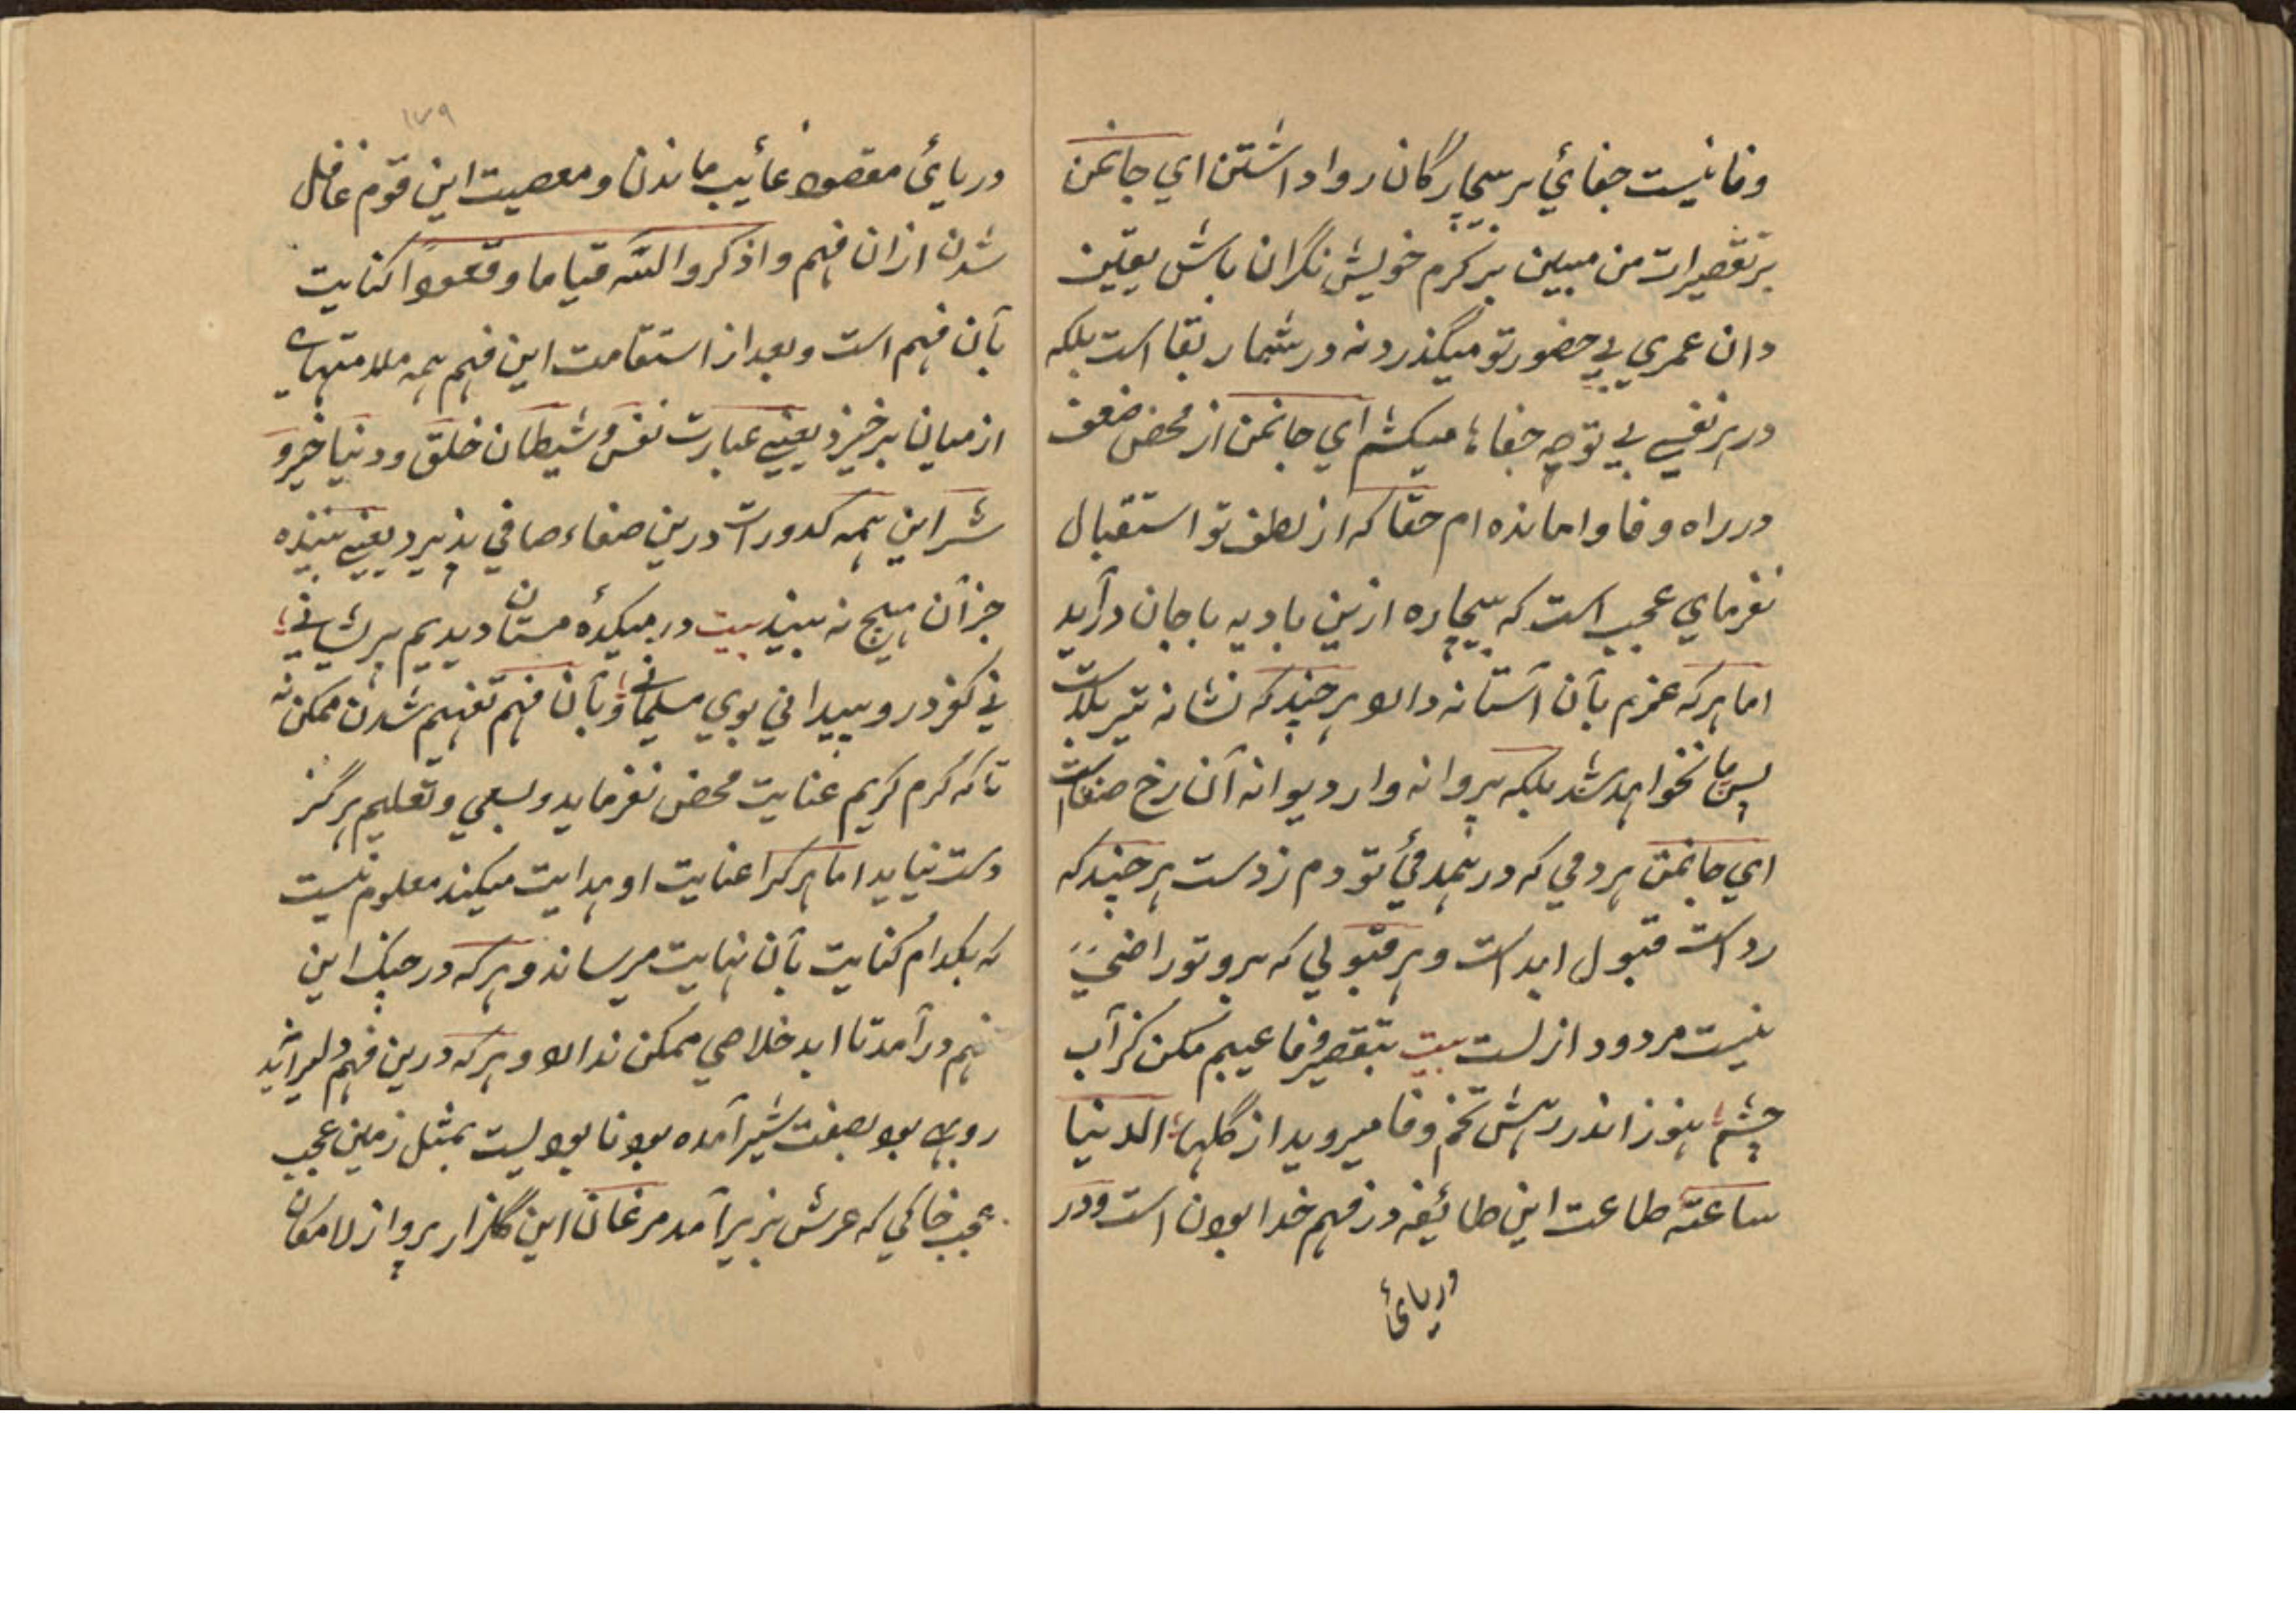 وفا نیست جفائي بر بیچارگان روا داشتن اي جانمن
بر تقصیرات من مبین بر کرم خویش نگران باش یقین
دان عمري بي حضور تو میگذرد نه در شمار بقا است بلکه
در هر نفسي بي توجه جفاها میکشم اي جانمن از محض ضعف
در راه وفا وامانده ام حقا که از لطف تو استقبال
نفرماي عجب است که بیچاره ازین بادیه با جان درآید
اما هر که عزم بآن آستانه دارد هر چند که نشانه تیر بلاست
پس پا نخواهد شد بلکه پروانه وار دیوانه آن رخ صفاست
اي جانمن هر دمي که در همدمئ تو دم زدست هر چند که
رد است قبول ابد است و هر قبولي که برو تو راضي
نیست مردود ازلست بیت بتقصیر وفا عیبم مکن کز آب
چشم ما هنوز اندر رهش تخم وفا میروید از گلها الدنیا
ساعة طاعت این طائیفه در فهم خدا بودن است و در
دریائ
۱۷۹
دریائ مقصود غائیب ماندن و معصیت این قوم غافل
شدن ازان فهم واذکروا الله قیاما وقعودا کنایت
بآن فهم است و بعد از استقامت این فهم همه ملامتهاي
از میان برخیزد یعني عبارت نفس و شیطان خلق و دنیا خیر و
شر این همه کدورات درین صفاء صافي پذیرد یعني بیننده
جز آن هیچ نه بیند بیت در میکدهٔ مستان دیدیم پریشاني ها
ني کفر درو پیدا ني بوي مسلماني ها و بآن فهم تفهیم شدن ممکن نه
تا که کرم کریم عنایت محض نفرماید و بسعي و تعلیم هرگز
دست نیاید اما هر کرا عنایت او هدایت میکند معلوم نیست
که بکدام کنایت بآن نهایت میرساند و هر که در چنگ این
فهم درآمد تا ابد خلاصي ممکن ندارد و هر که درین فهم دلیر آید
روبهي بود بصفت شیر آمده بود نابودیست بمثل زمین عجب
عجب خاکي که عرش بزیر آمد مرغان این گلزار پرواز لامکان